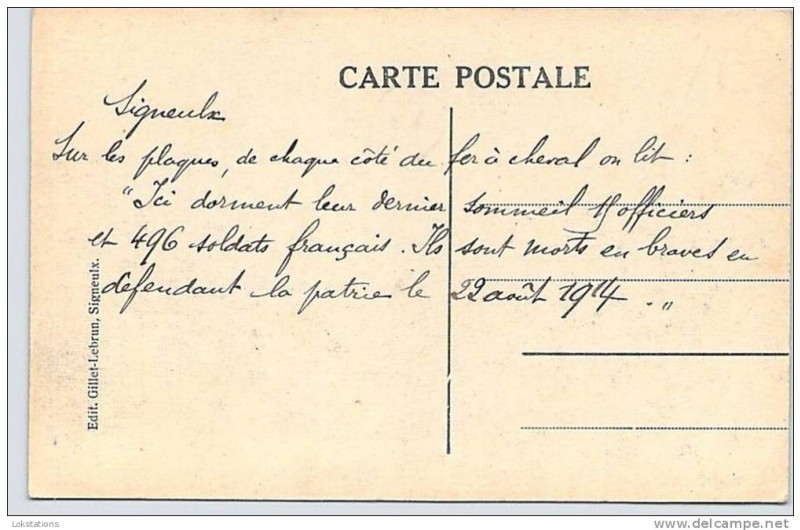 CARTE POSTALE
Signeulx
Sur les plaques, de chaque côté du fer à cheval on lit :
"Ici dorment leur dernier sommeil officiers
et 496 soldats français. Ils sont morts en braves en
défendant la patrie le 22 août 1914 . "
Edit. Gillet-Lebrun, Signeulx.
Lokstations
delcampe.net